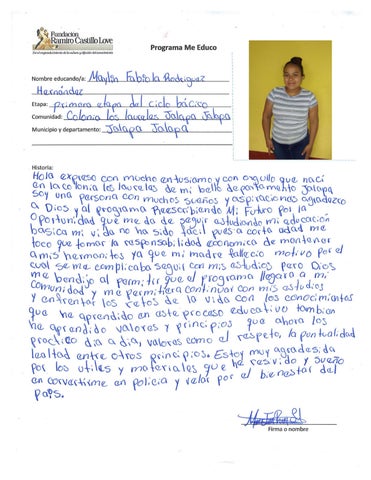 Fundación
Ramiro Castillo Love
Programa Me Educo
Nombre educando/a: Maylin Fabiola Rodriguez
Hernández
Etapa: primera etapa del ciclo básico
Comunidad: Colonia los laureles Jalapa Jalapa
Municipio y departamento: Jalapa Jalapa
Historia:
Hola expreso con mucho entusiasmo y con orgullo que naci
en la colonia los laureles de mi bello departamento Jalapa
soy una persona con muchos sueños y aspiraciones agradezco
a Dios y al programa Reescribiendo Mi Futuro por la
oportunidad que me da de seguir estudiando mi educación
basica mi vida no ha sido facil pues a corta edad me
toco que tomar la responsabilidad economica de mantener
a mis hermanitos ya que mi madre fallecio motivo por el
cual se me complicaba seguir con mis estudios pero Dios
me bendijo al permitir que el programa llegara a mi
comunidad y me permitiera continuar con mis estudios
y enfrentar los retos de la vida con los conocimientos
que he aprendido en este proceso educativo tambien
he aprendido valores y principios que ahora los
practico dia a dia, valores como el respeto, la puntualidad
lealtad entre otros principios. Estoy muy agradesida
por los utiles y materiales que he resivido y sueño
en convertirme en policia y velar por el bienestar del
país.
Firma o nombre